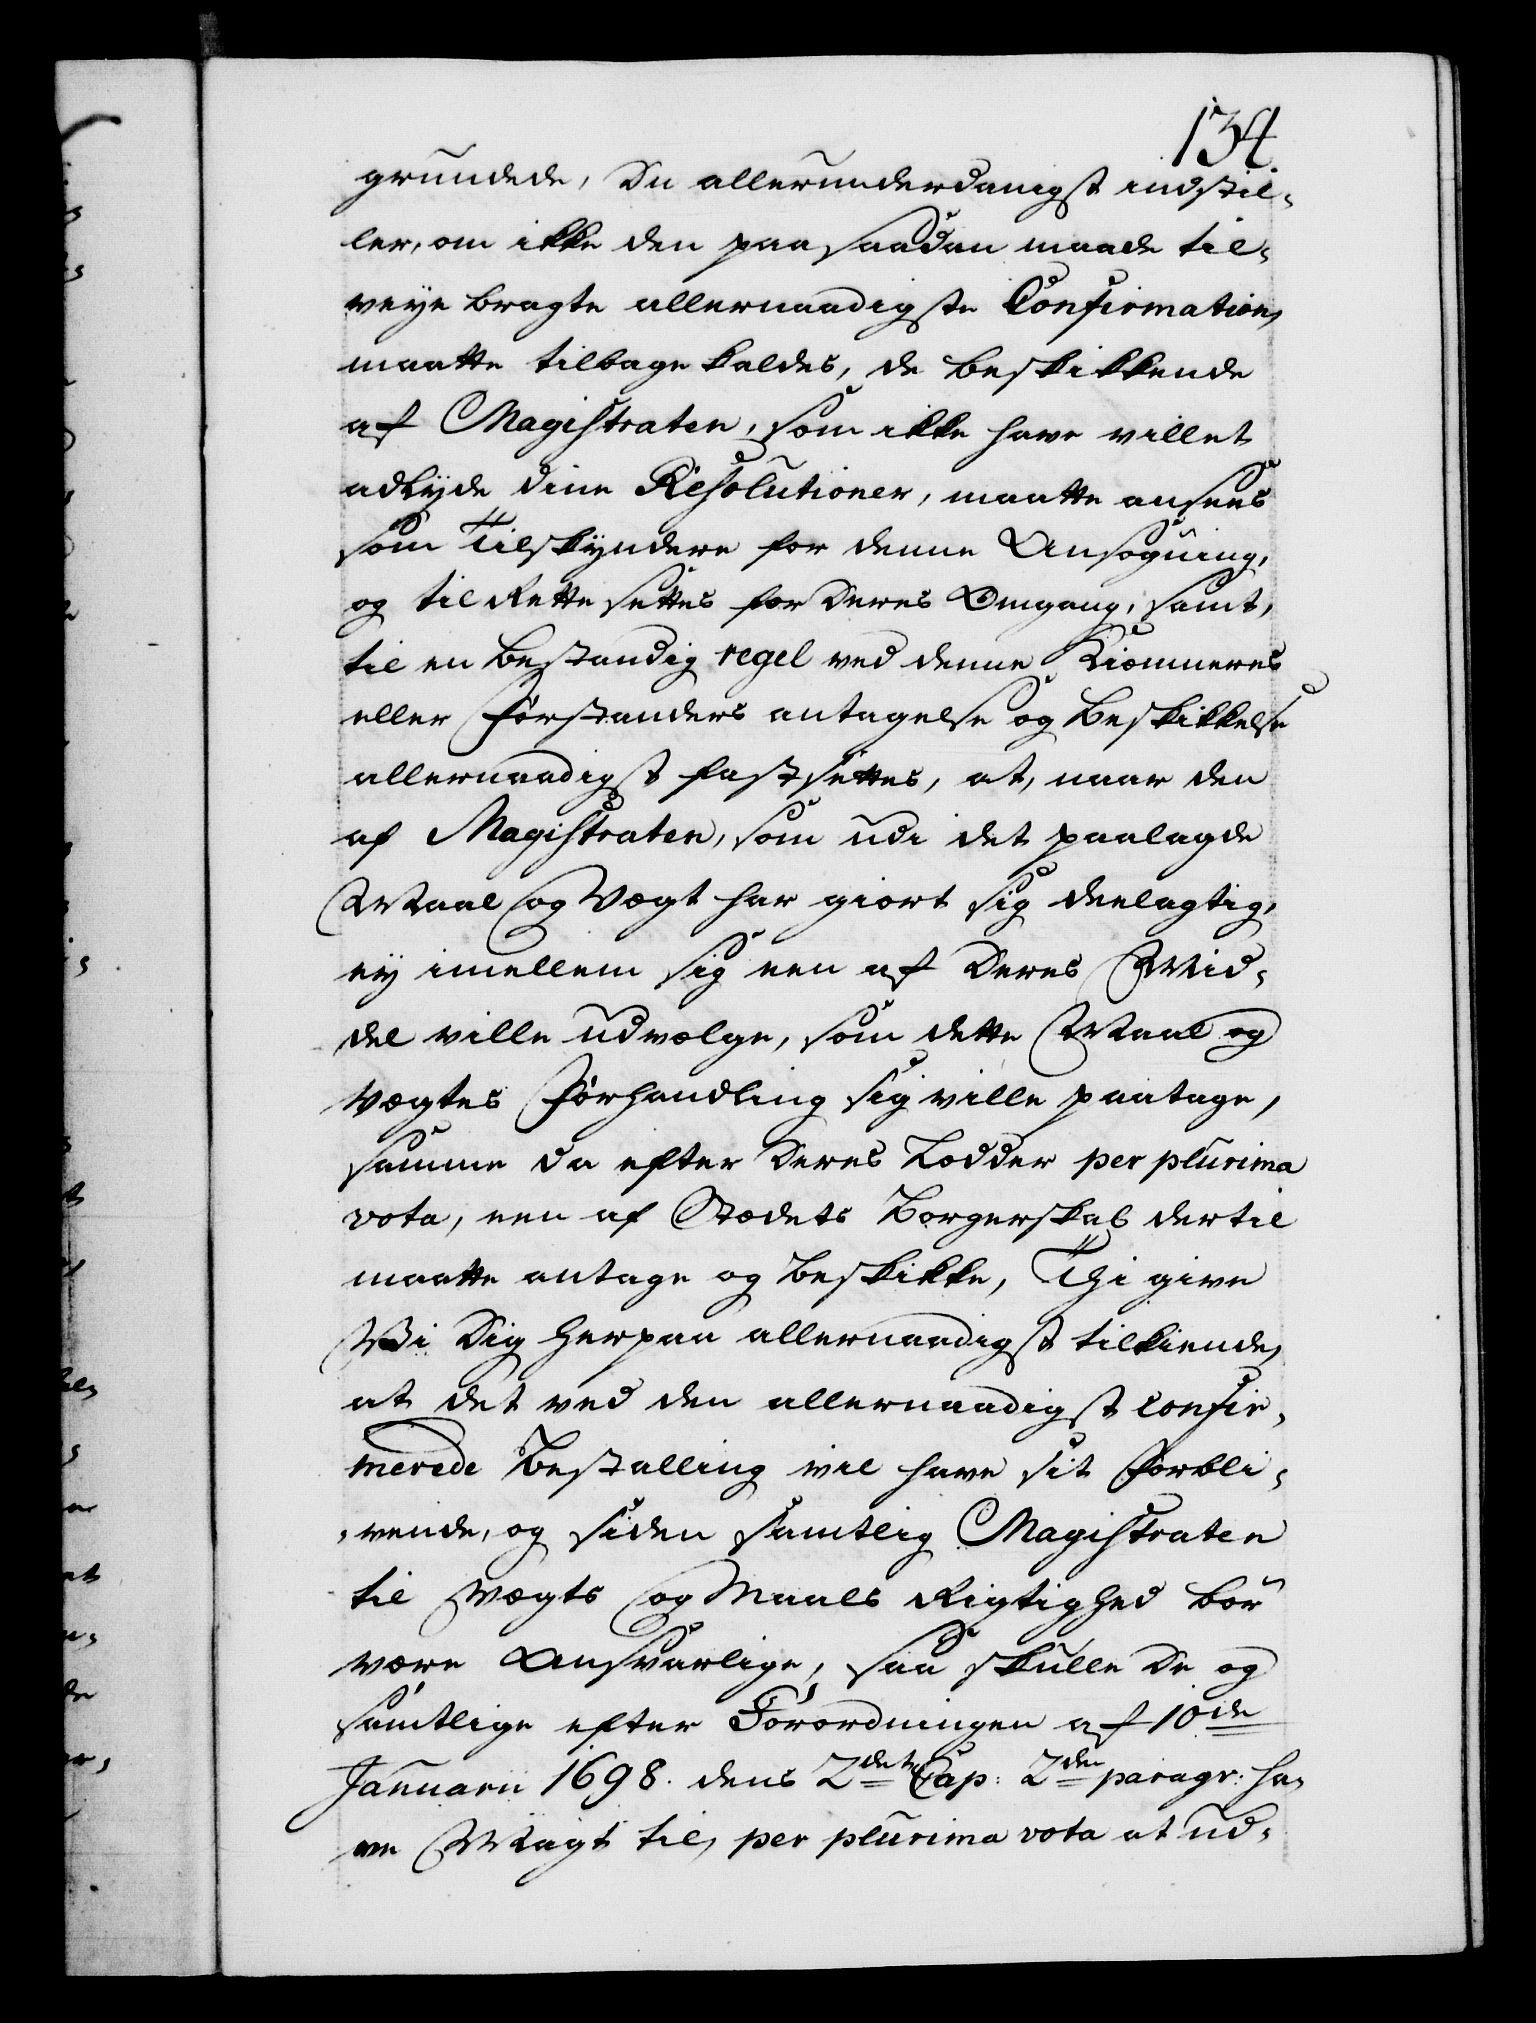 134.
grundede, Du allerunderdanigst indstil-
ler, om ikke den paa saadan maade til-
veye bragte allernaadigste Confirmation,
maatte tilbage kaldes, de beskikkende
af Magistraten, som ikke have villet
adlyde dine Resolutioner, maatte ansees
som Tilskyndere for denne Ansøgning,
og til Rette settes for deres Omgang, samt,
til en bestandig regel ved denne Kiemneres
eller Forstanders antagelse og Beskikkelse
allernaadigst fastsettes, at, naar den
af Magistraten, som udi det paalagde
Maal og Vægt har giort sig deelagtig,
ey imellem sig een af deres Mid-
del ville udvælge, som dette Maal og
Vægtes Forhandling sig ville paatage,
samme da efter deres Lodder per plurima
vota, een af Stædets Borgerskab dertil
maatte antage og beskikke, Thi give
Wi dig herpaa allernaadigst tilkiende,
at det ved den allernaadigst confir-
merede Bestalling vil have sit Forbli-
vende, og siden samtlig Magistraten
til Vægts og Maals Rigtighed bør
være Ansvarlige, saa skulle de og
samtlige efter Forordningen af 10de
Januarii 1698. dens 2det Cap: 2den paragr: ha-
ve Magt til, per plurima vota at ud-